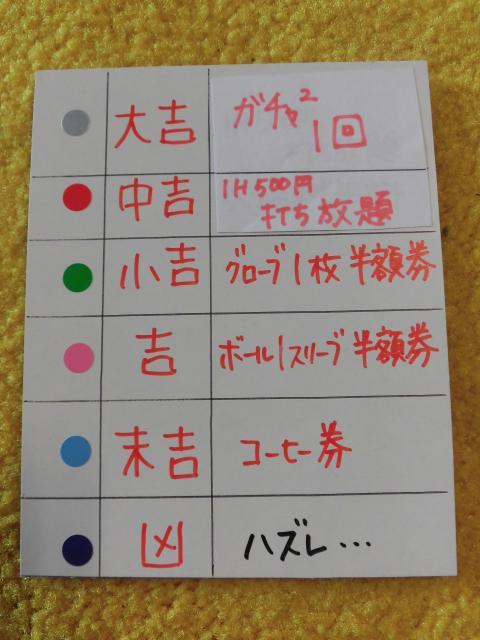 大吉
ガチャ²
1回
中吉
1H500円
打ち放題
小吉 グローブ1枚半額券
吉 ボール1スリーブ半額券
末吉 コーヒー券
凶 ハズレ…